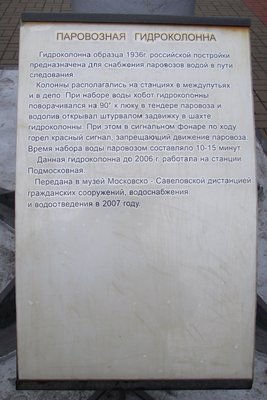 ПАРОВОЗНАЯ ГИДРОКОЛОННА
Гидроколонна образца 1936г. российской постройки
предназначена для снабжения паровозов водой в пути
следования.
Колонны располагались на станциях в междупутьях
и в депо. При наборе воды хобот гидроколонны
поворачивался на 90º к люку в тендере паровоза и
водолив открывал штурвалом задвижку в шахте
гидроколонны. При этом в сигнальном фонаре по ходу
горел красный сигнал, запрещающий движение паровоза.
Время набора воды паровозом составляло 10-15 минут.
Данная гидроколонна до 2006г. работала на станции
Подмосковная.
Передана в музей Московско - Савеловской дистанцией
гражданских сооружений, водоснабжения
и водоотведения в 2007 году.